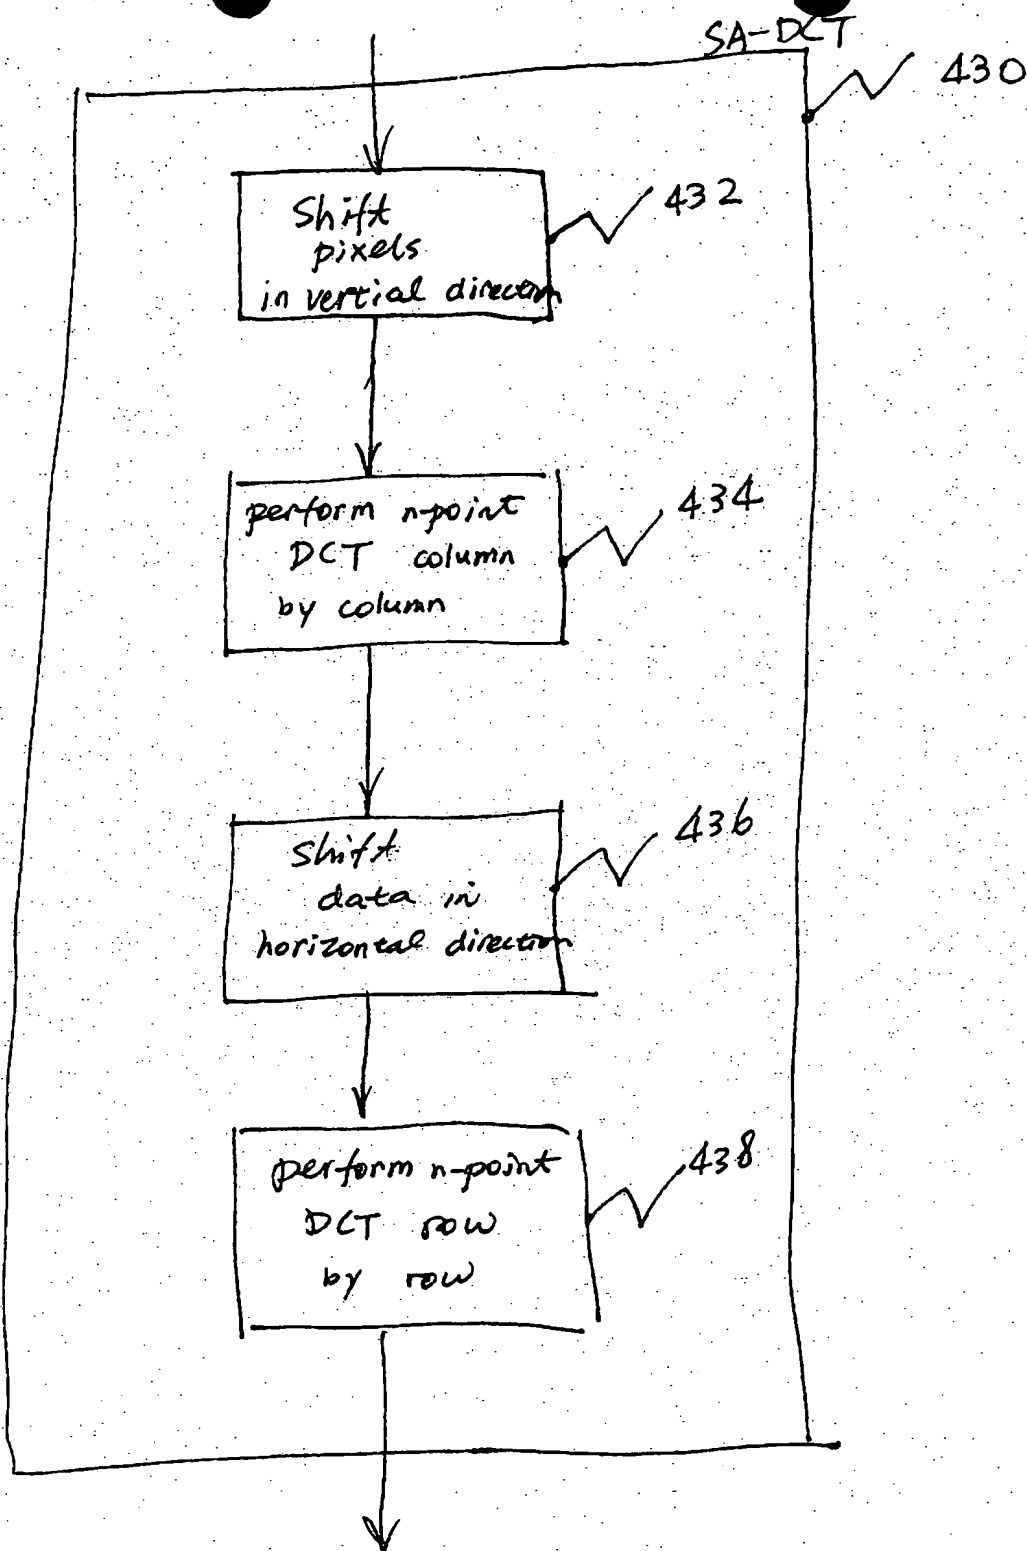 SA-DCT
430
Shift
pixels
in vertial direction
432
perform n-point
DCT column
by column
434
Shift
data in
horizontal direction
436
perform n-point
DCT row
by row
438